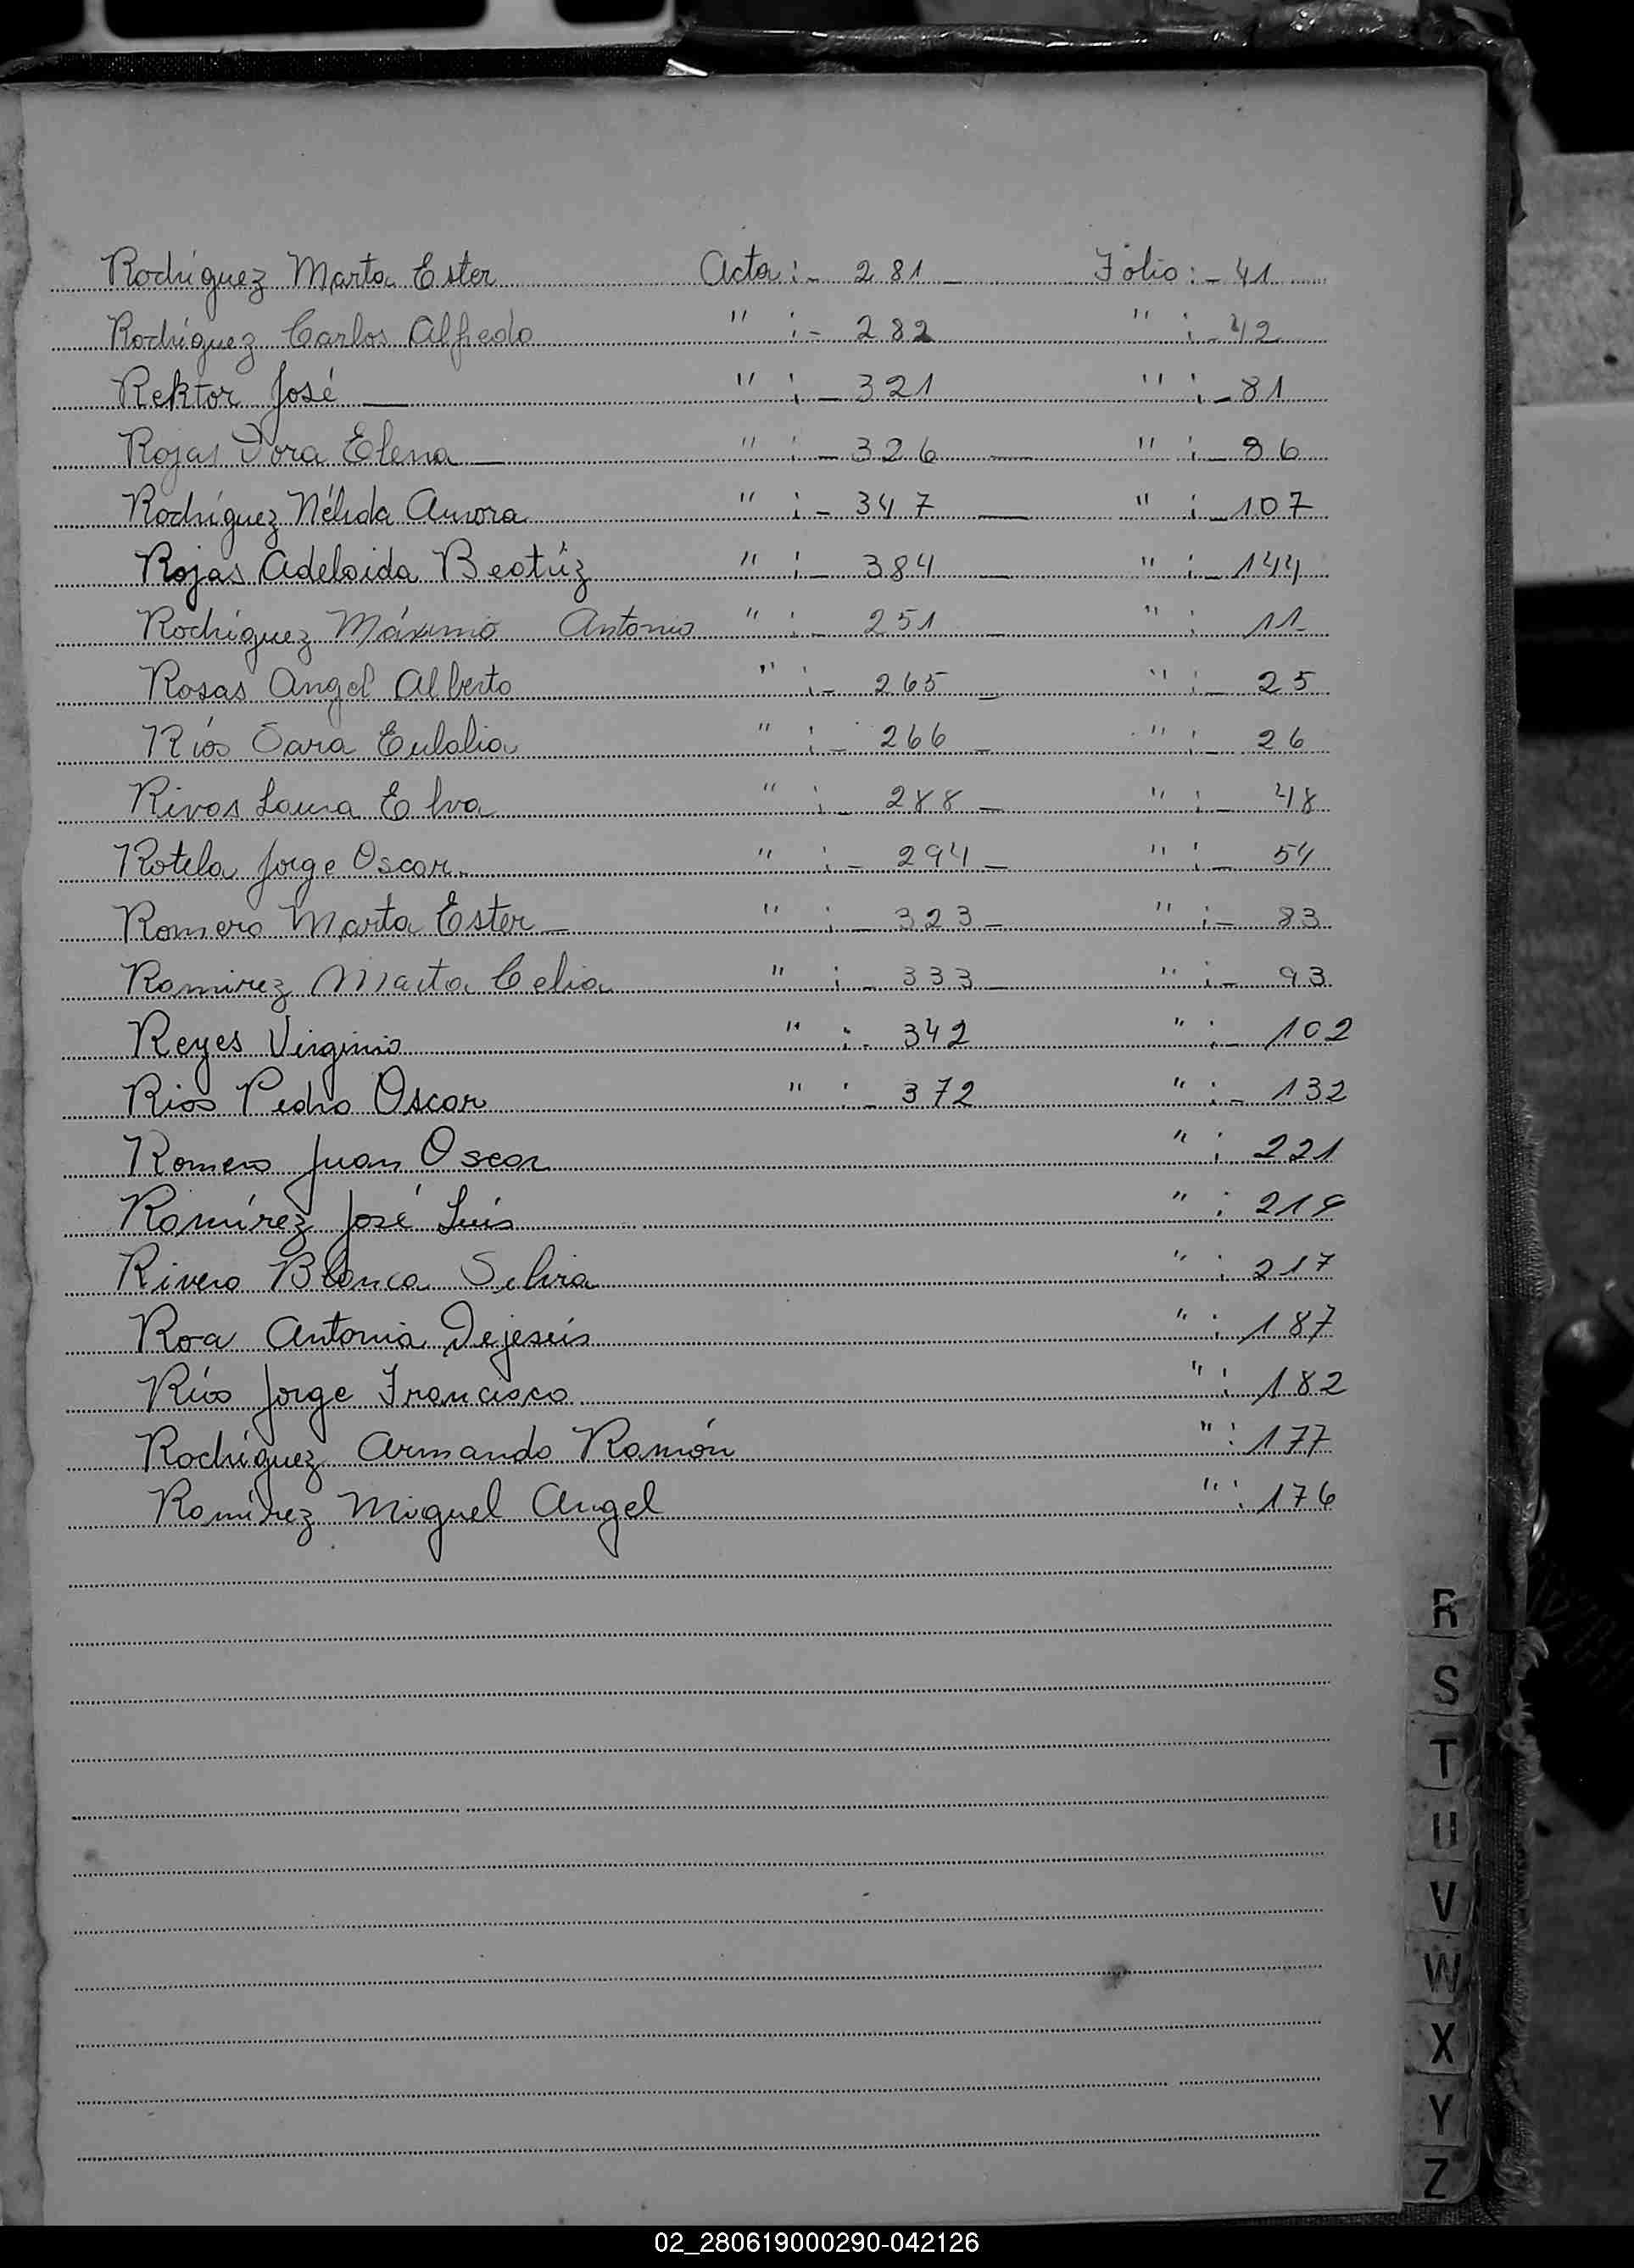 Rodríguez Marta Ester Acta :- 281 - Folio :- 41
Rodríguez Carlos Alfredo " :- 282 " :- 42
Rektor José — " :- 321 " :- 81
Rojas Dora Elena — " :- 326 — " :- 86
Rodríguez Nélida Aurora " :- 347 — " :- 107
Rojas Adelaida Beatríz " :- 384 — " :- 144
Rodríguez Máximo Antonio " :- 251 - " : 11-
Rosas Angel Alberto " :- 265 - " :- 25
Ríos Sara Eulalia " :- 266 - " :- 26
Rivas Laura Elva " :- 288 - " :- 48
Rotela Jorge Oscar " :- 294 - " :- 54
Romero Marta Ester - " :- 323 - " :- 83
Ramirez Marta Celia " :- 333 - " :- 93
Reyes Virginio " :- 342 " :- 102
Rios Pedro Oscar " :- 372 " :- 132
Romero Juan Oscar " : 221
Ramírez José Luis " : 219
Rivero Blanca Selva " : 217
Roa Antonia Dejesús " : 187
Ríos Jorge Francisco " : 182
Rodríguez Armando Ramón " : 177
Ramírez Miguel Angel " : 176
R
S
T
U
V
W
X
Y
Z
02_280619000290-042126